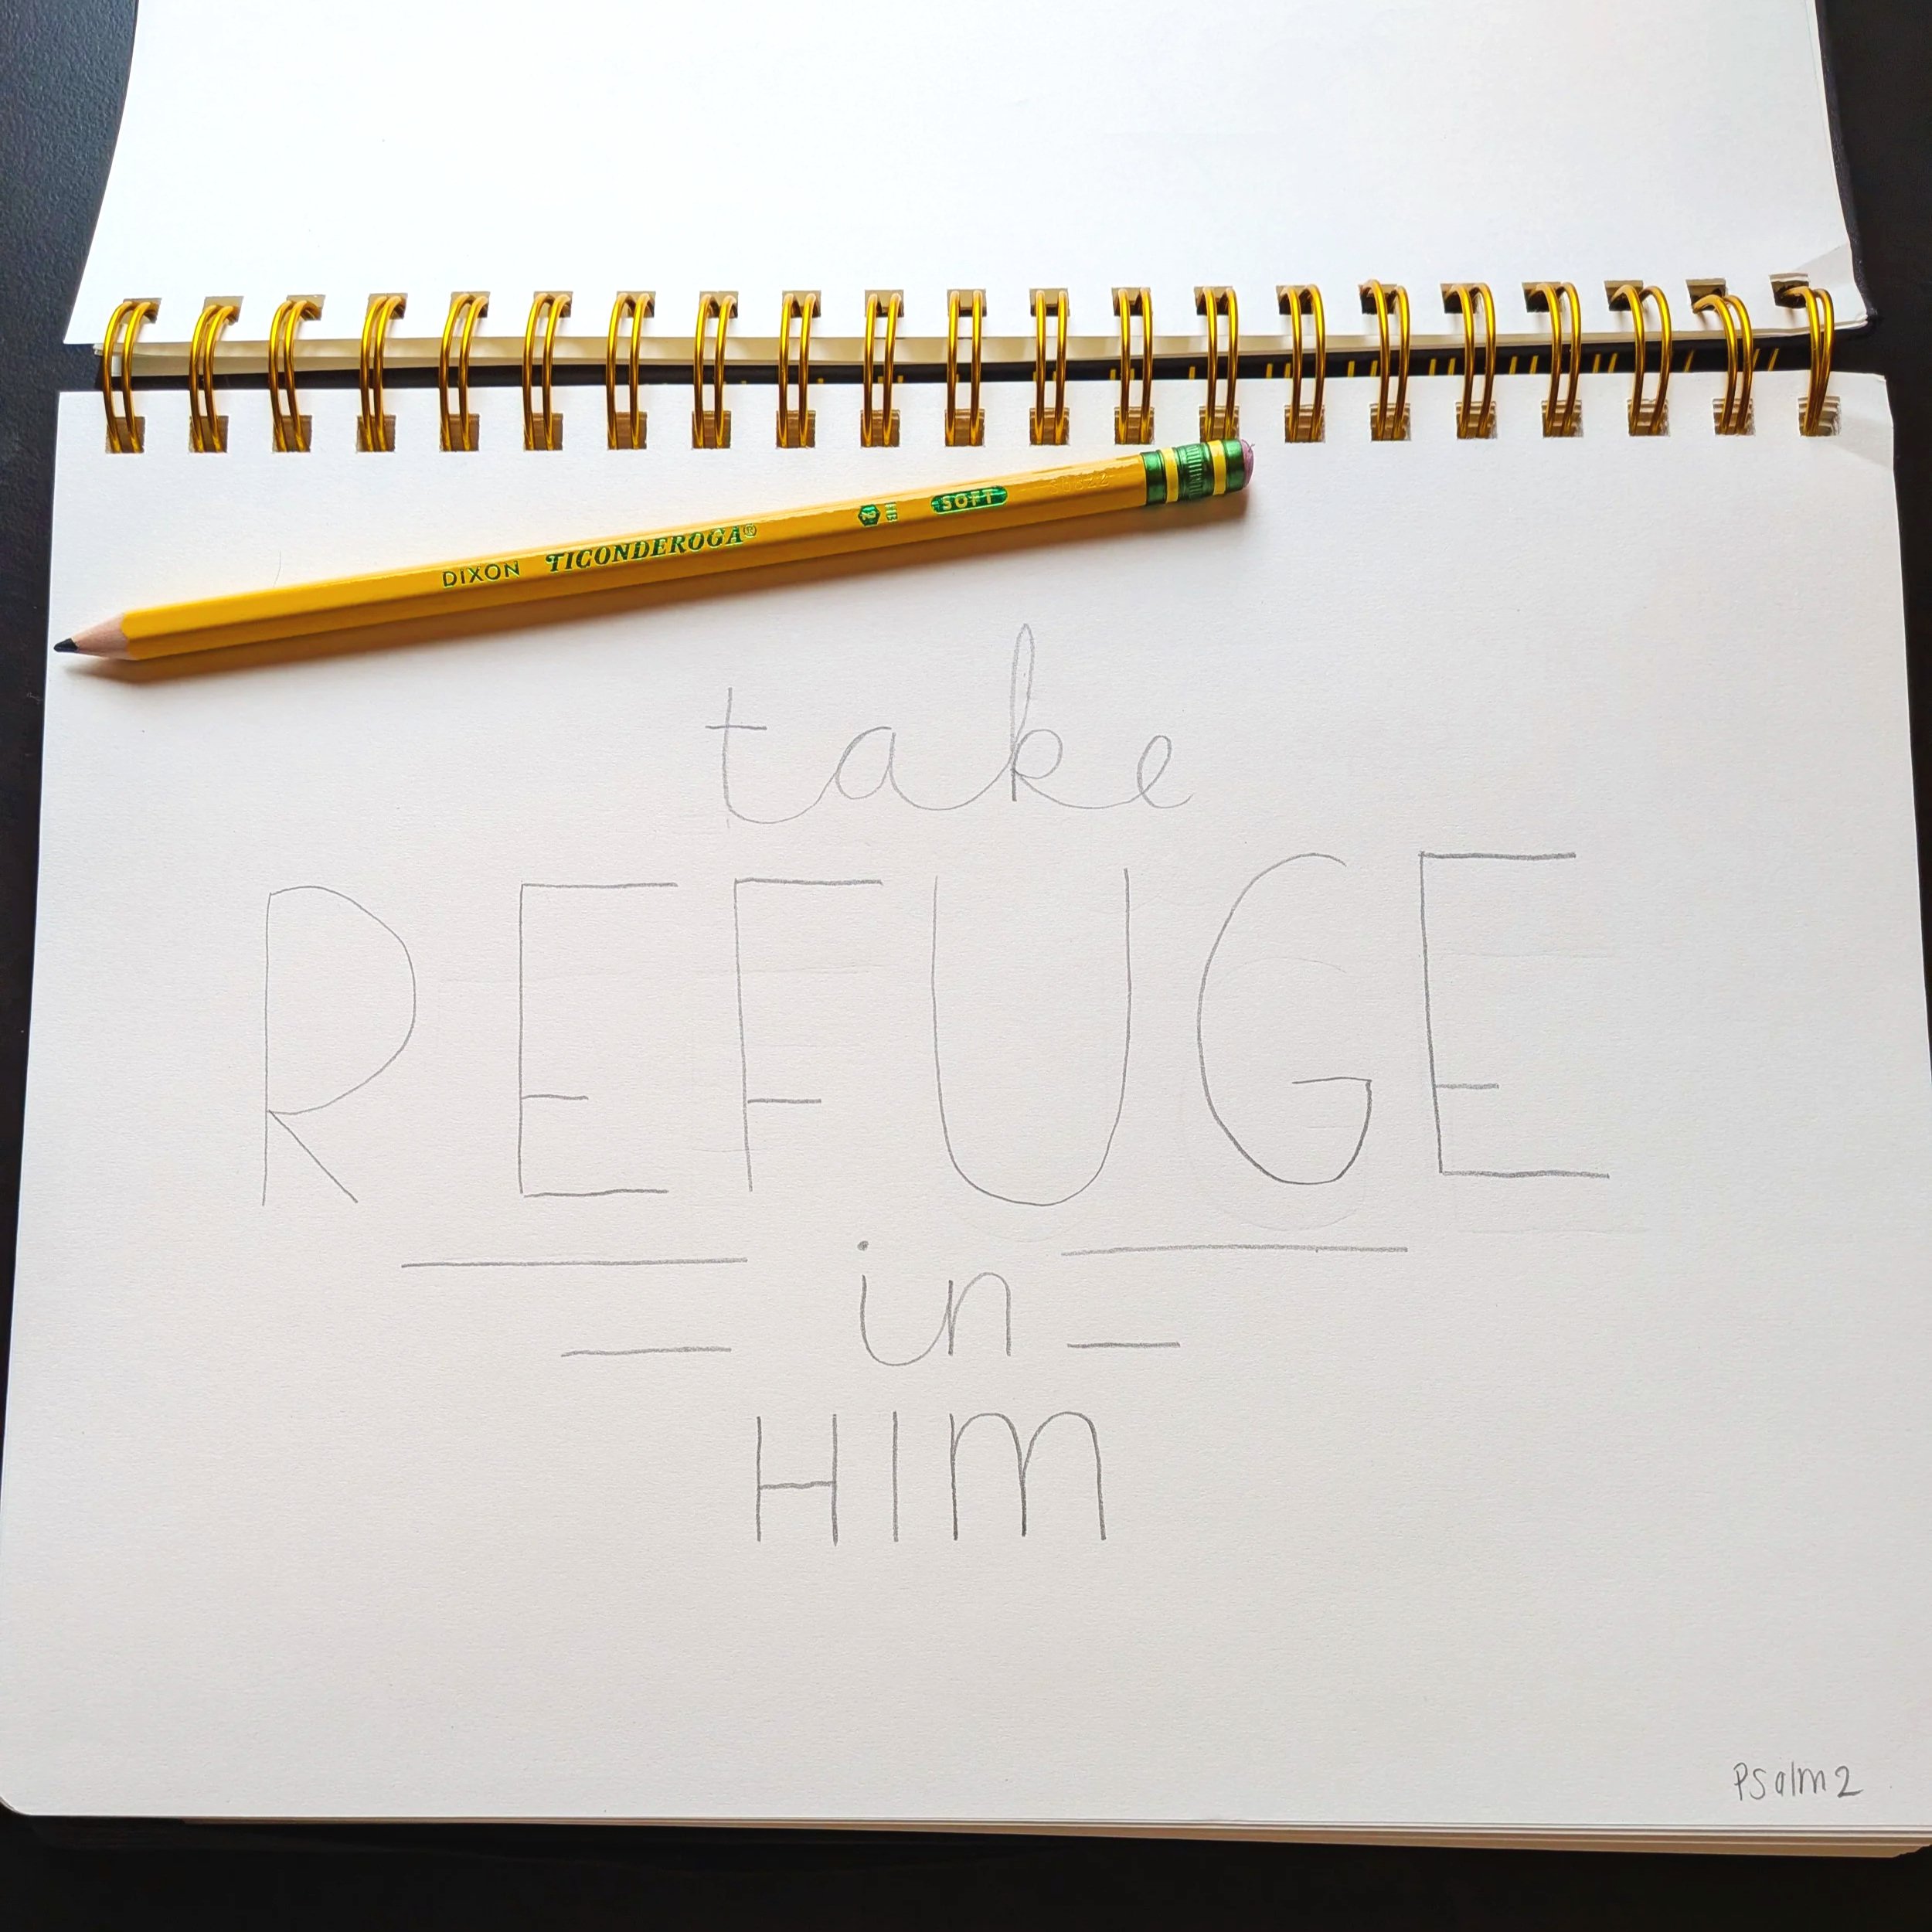 DIXON TICONDEROGA® 2 HB SOFT
take
REFUGE
in
HIM
Psalm 2